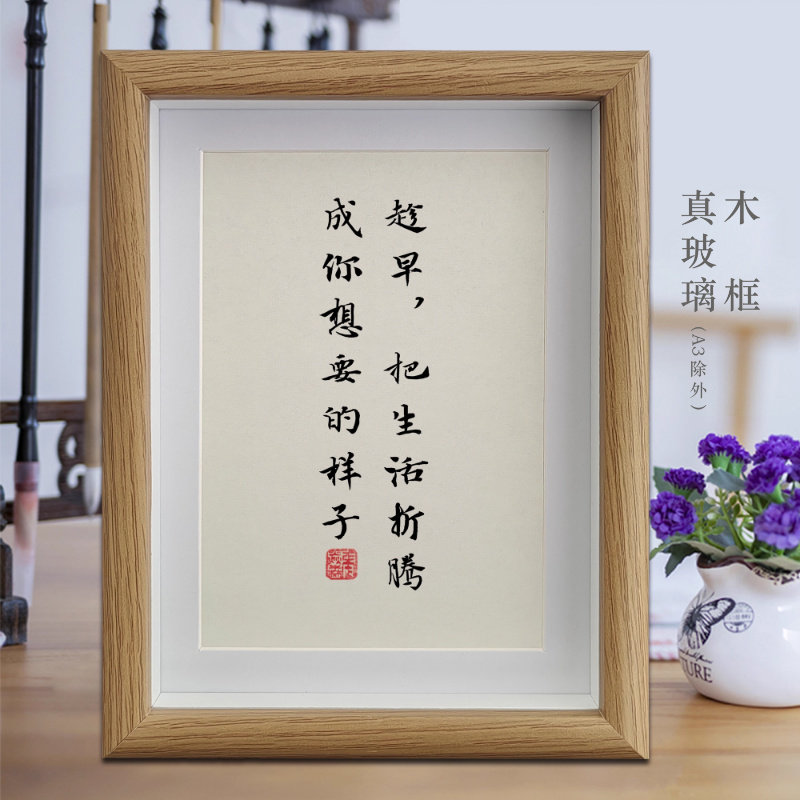 趁早，把生活折腾
成你想要的样子
木框
真玻璃(A3除外)
TURE